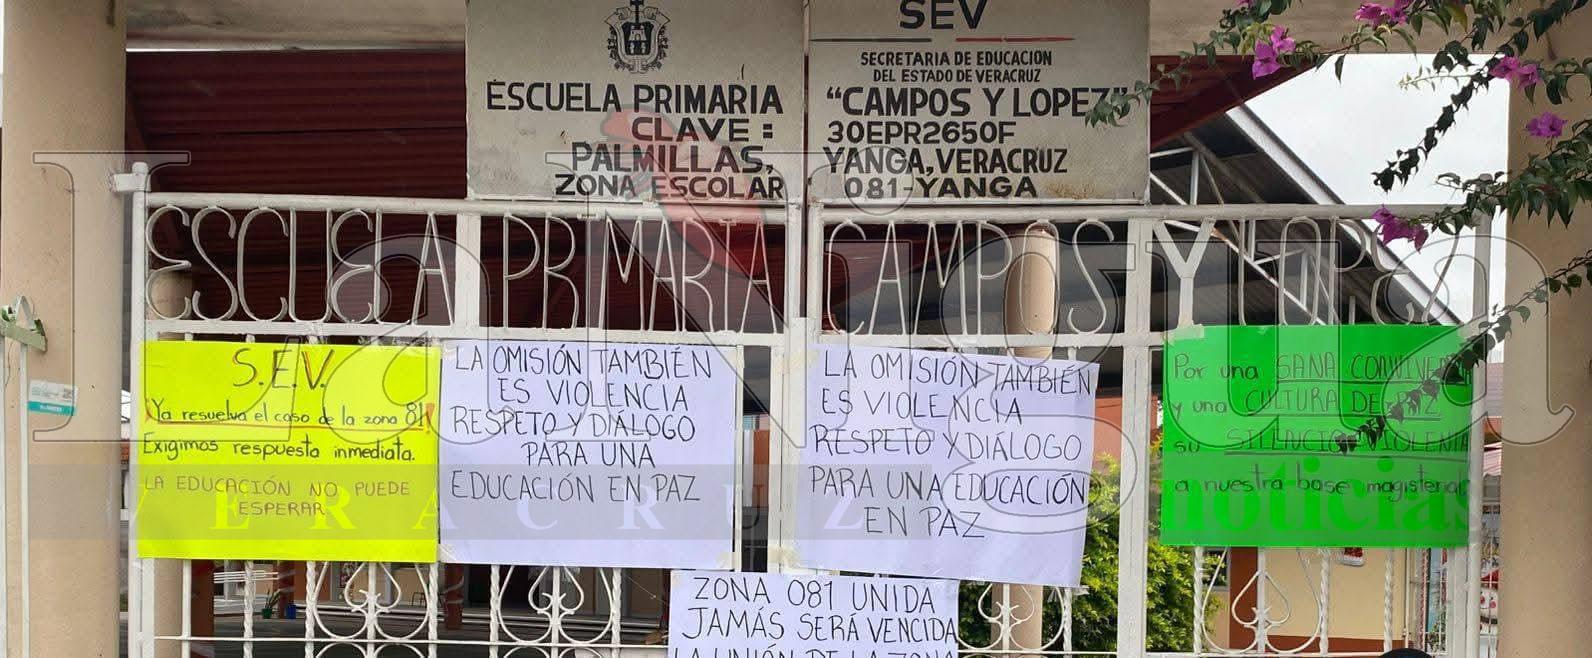 SEV
SECRETARIA DE EDUCACION
DEL ESTADO DE VERACRUZ
ESCUELA PRIMARIA "CAMPOS Y LOPEZ"
CLAVE: 30EPR2650F
PALMILLAS, YANGA, VERACRUZ
ZONA ESCOLAR 081-YANGA
ESCUELA PRIMARIA CAMPOS Y LOPEZ
S.E.V.
¡Ya resuelva el caso de la zona 81!
Exigimos respuesta inmediata.
LA EDUCACIÓN NO PUEDE
ESPERAR
LA OMISIÓN TAMBIÉN
ES VIOLENCIA
RESPETO Y DIÁLOGO
PARA UNA
EDUCACIÓN EN PAZ
LA OMISIÓN TAMBIÉN
ES VIOLENCIA
RESPETO Y DIÁLOGO
PARA UNA EDUCACIÓN
EN PAZ
Por una SANA
y una CULTURA DE PAZ
su SILENCIO VIOLENTA
a nuestra base magisterial
ZONA 081 UNIDA
JAMÁS SERÁ VENCIDA
LA UNIÓN DE LA ZONA
La Nigua
VERACRUZ noticias